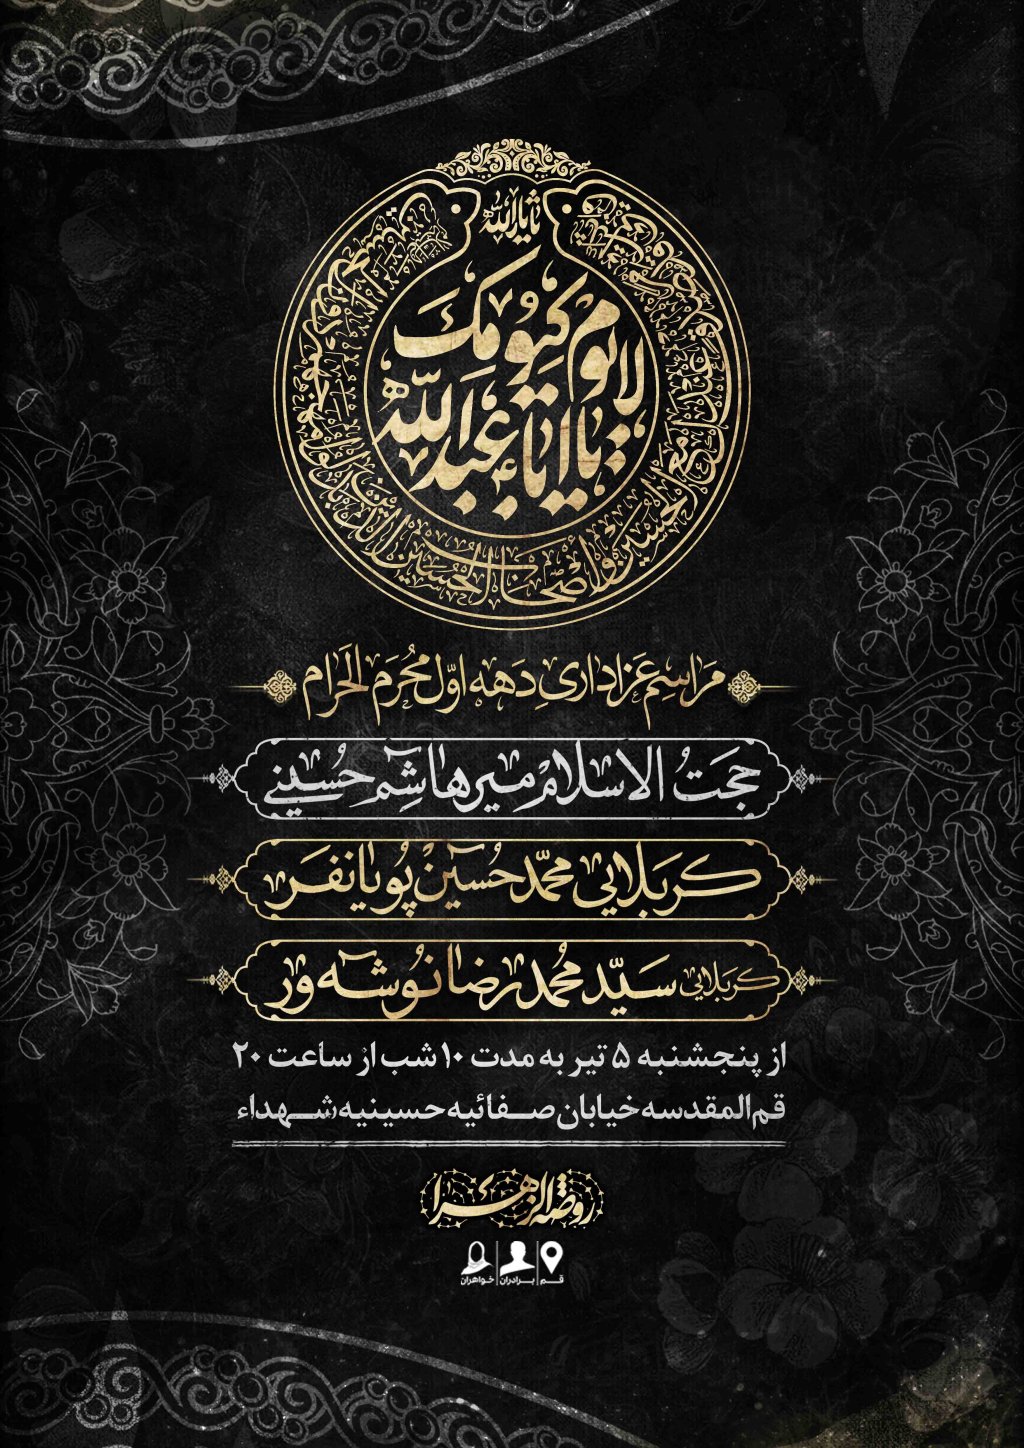 یا ثارالله
لا یوم کیومک
یا اباعبدالله
مراسم عزاداری دهه اول محرم الحرام
حجت الاسلام میرهاشم حسینی
کربلایی محمدحسین پویانفر
کربلایی سید محمدرضا نوشه ور
از پنجشنبه ۵ تیر به مدت ۱۰ شب از ساعت ۲۰
قم المقدسه خیابان صفائیه حسینیه شهداء
روضة الزهرا
قم | برادران | خواهران